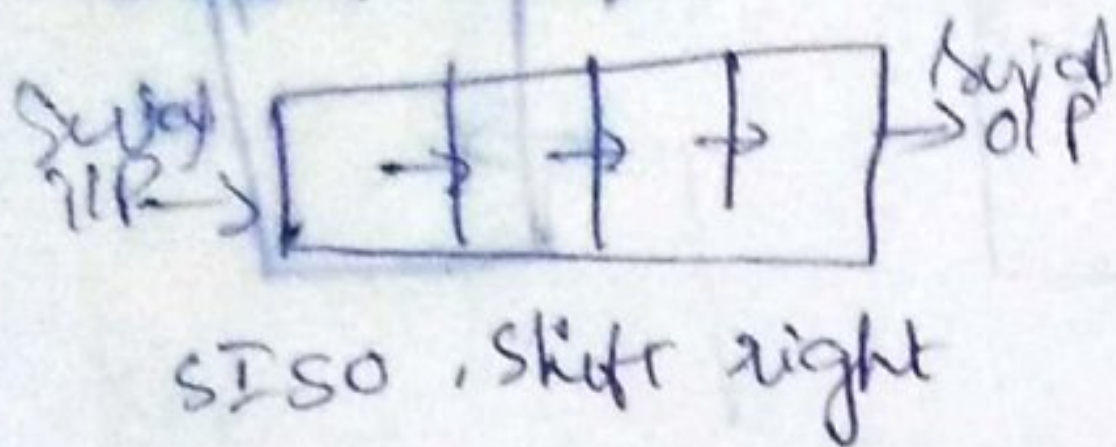 Serial
I/P
Serial
O/P
SISO, Shift right